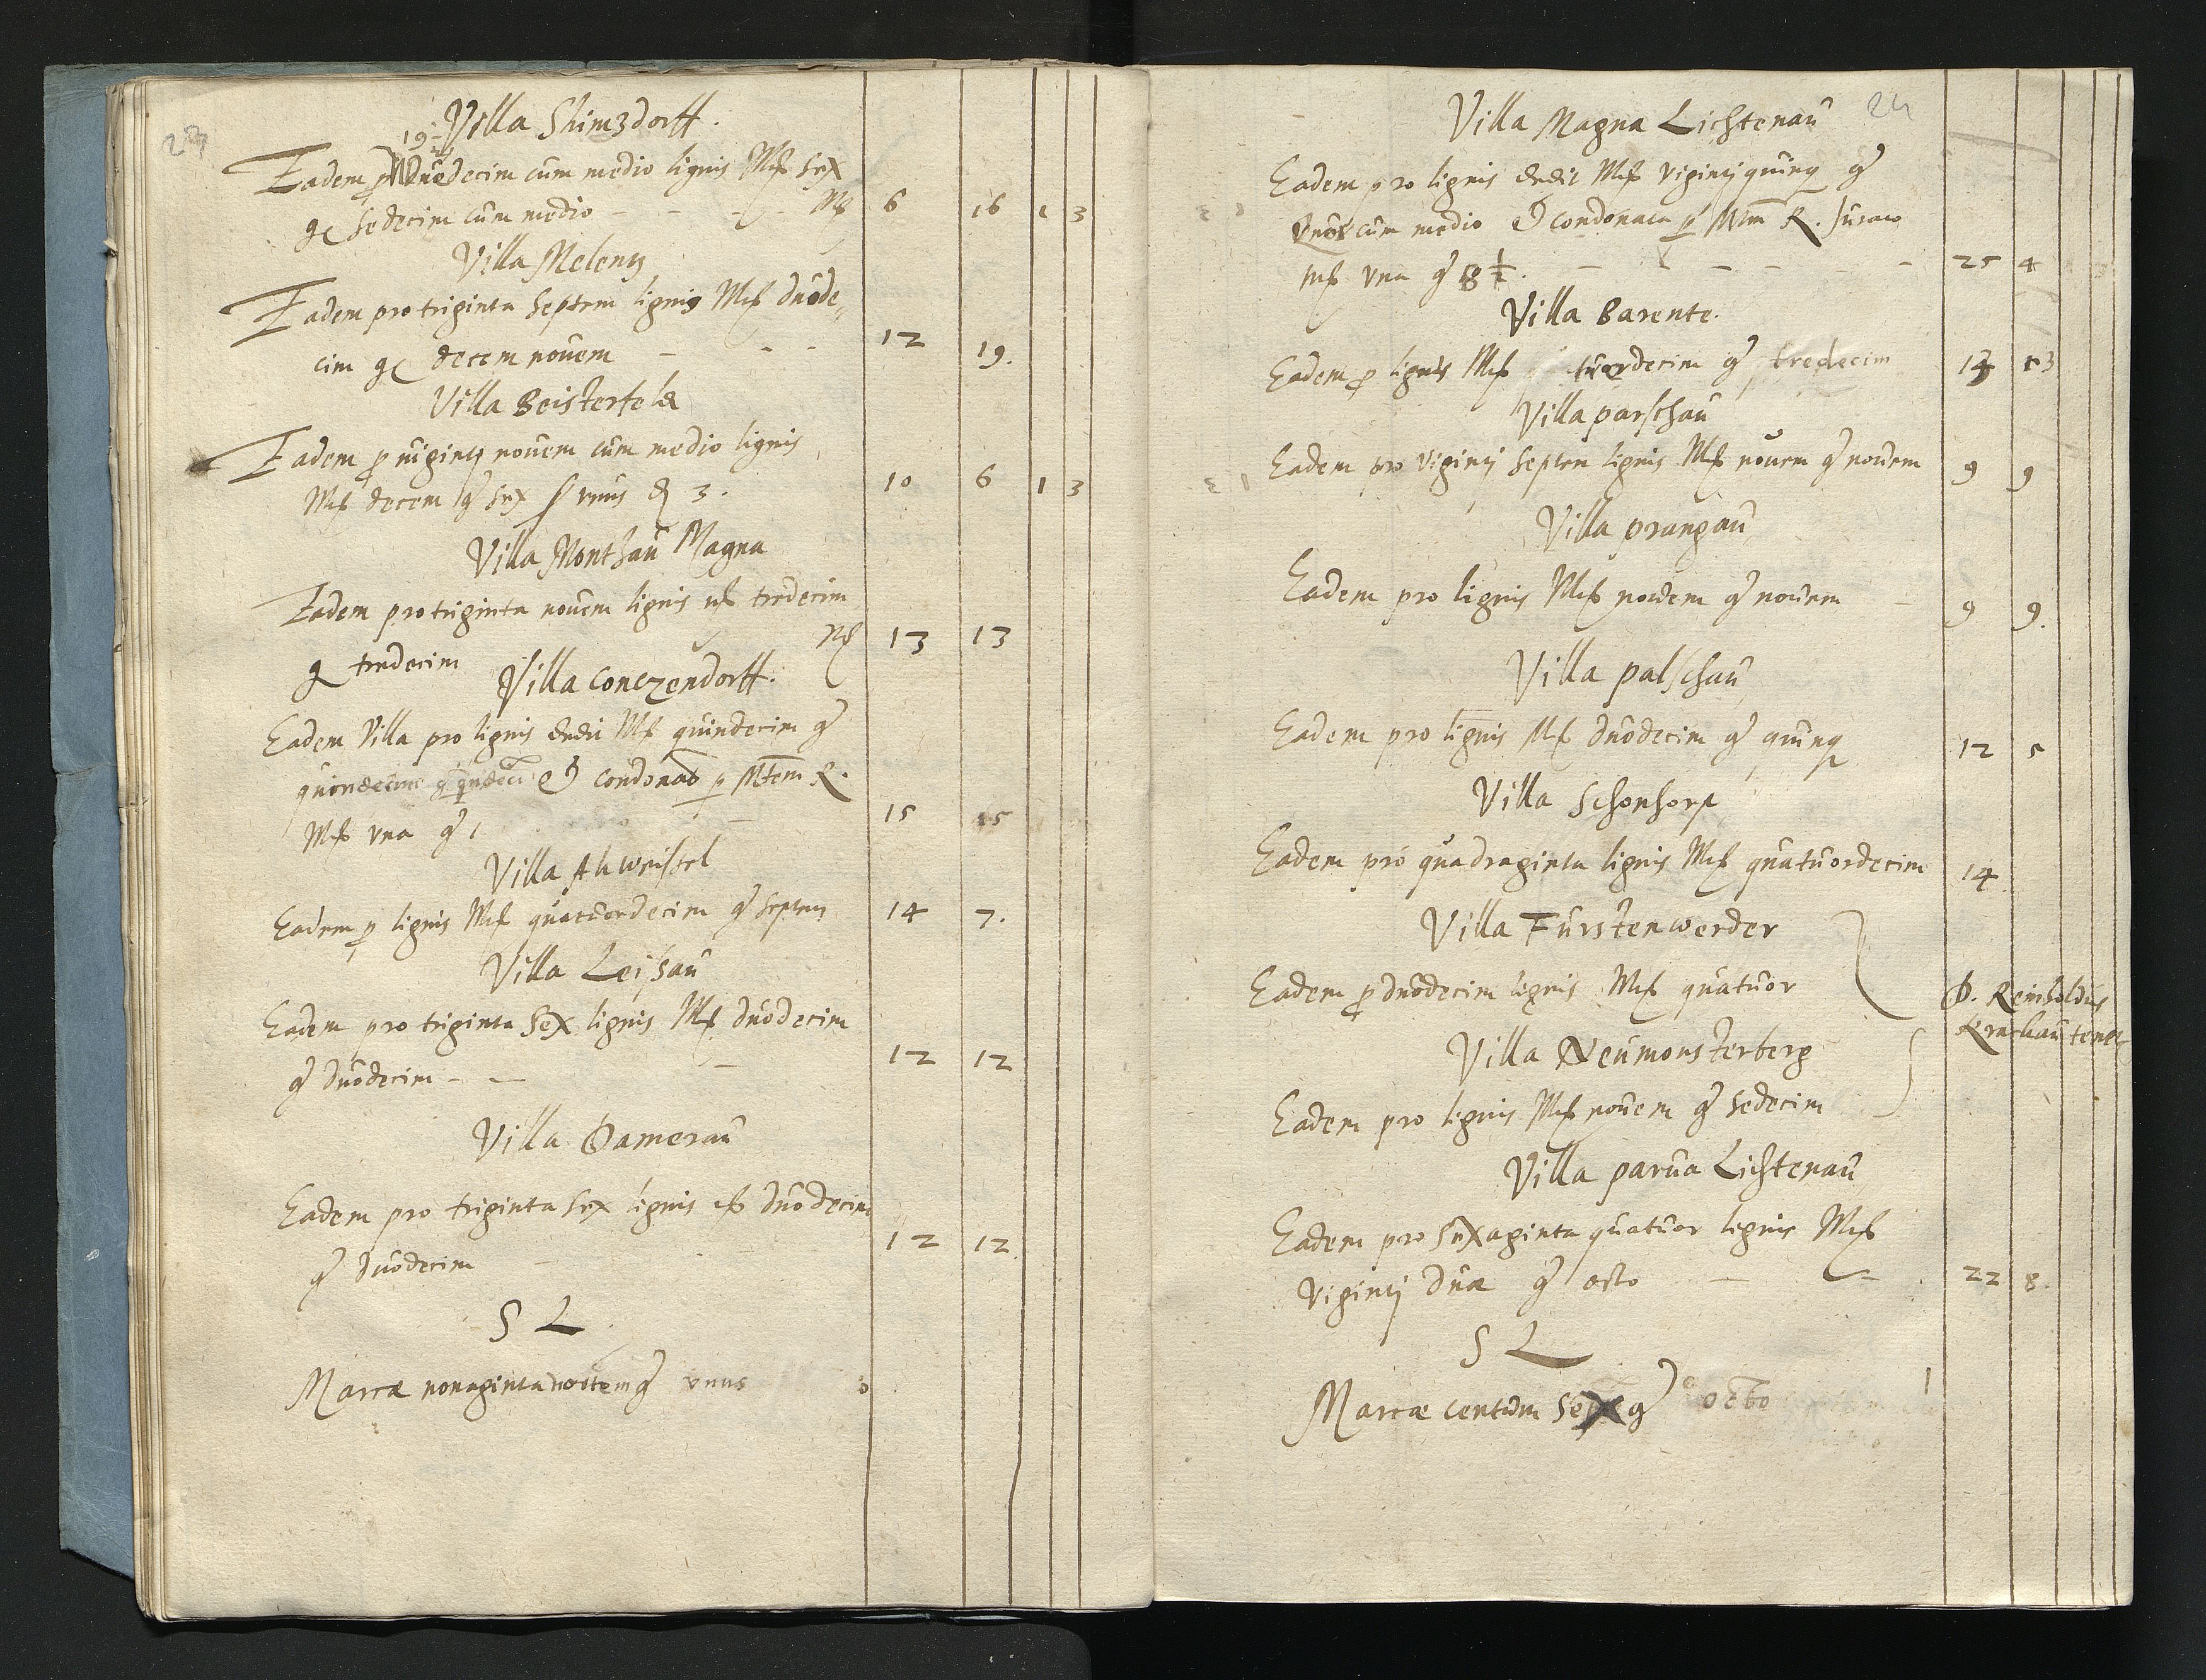 23
Villa Shimzdorff.
19½
Eadem p Nouedecim cum medio lignis Mrk Sex
gr Sedecim cum medio - - - - Mrk 6 16 1 3
Villa Melentz
Eadem pro triginta Septem lignis Mrk duode,
cim gr decem nouem - - - 12 19.
Villa Beisterfeld
Eadem p uiginty nouem cum medio lignis
Mrk decem gr Sex ß vnus d 3. 10 6 1 3
Villa Monthau Magna
Eadem pro triginta nouem lignis mrk tredecim
gr tredecim Mrk 13 13
Villa Conczendorff.
Eadem Villa pro lignis dedit Mrk quindecim gr
quindecim et condonab p Mtem R.
Mrk vna gr 1 15 15
Villa Altweissel
Eadem p lignis Mrk quatuordecim gr Septem 14 7.
Villa Leisau
Eadem pro triginta Sex lignis Mrk duodecim
gr duodecim - - - 12 12
Villa Damerau
Eadem pro triginta Sex lignis mrk duodecim
gr duodecim - 12 12.
S L
Marcæ nonaginta gr vnus
24
Villa Magna Lichtenau
Eadem pro lignis dedit Mrk viginty quinq gr
cum medio et condonata p Mtem R.
mrk vna gr 18 ½. - - - - - 25 4
Villa Barente.
Eadem p lignis Mrk tuordecim gr tredecim 13 13
Villa parschau
Eadem pro viginty Septem lignis Mrk nouem gr nouem 9 9
Villa prangau
Eadem pro lignis Mrk nouem gr nouem - 9 9.
Villa palschau
Eadem pro lignis Mrk duodecim gr quinq 12 5
Villa Schonhorst
Eadem pro quadraginta lignis Mrk quatuordecim 14
Villa Fürstenwerder
Eadem p duodecim lignis Mrk quatuor
D. Reinholdus
Krackau tenet
Villa Neumonsterberg
Eadem pro lignis Mrk nouem gr Sedecim
Villa parua Lichtenau
Eadem pro Sexaginta quatuor lignis Mrk
viginty duæ gr octo - - 22 8.
S L
Marcæ centum Sex gr octo